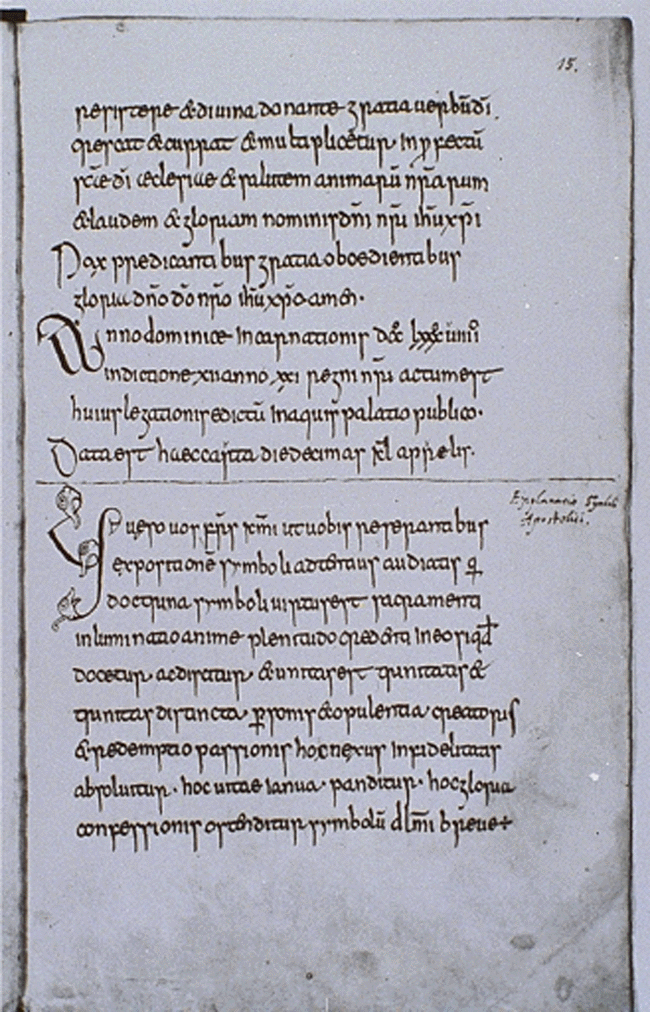 15.
resistere & diuina donante gratia uerbū dī.
crescat & currat & multiplicetur In ꝓfectū
sc̄æ dī æclesiae & salutem animarū nr̄arum
& laudem & gloriam nominis dn̄i nr̄i ihū xp̄i
Pax predicantibus gratia oboedientibus
gloria dn̄o dō nr̄o ihū xp̄o amen.
Anno dominice Incarnationis dcc lxxx uiiii
indictione xii anno xxi regni nr̄i actum est
huius legationis edictū In aquis palatio publico.
Data est haec carta die decimas kl aprelis.
Explanatio Symboli
Apostolici.
uero uos frs̄ km̄i ut uobis referantibus
expositionē symboli adtentius audiatis q
doctrina symboli uirtus est sacramenti
inluminatio anime plenitudo credenti In eo siqd
docetur. aedificatur. & unitas est trinitatis &
trinitas distincta ꝑsonis & opulentia creatoris
& redemptio passionis hoc nexus Infidelitatis
absoluitur. hoc uitae ianua panditur. hoc gloria
confessionis ostenditur symbolū dlm̄i breue+